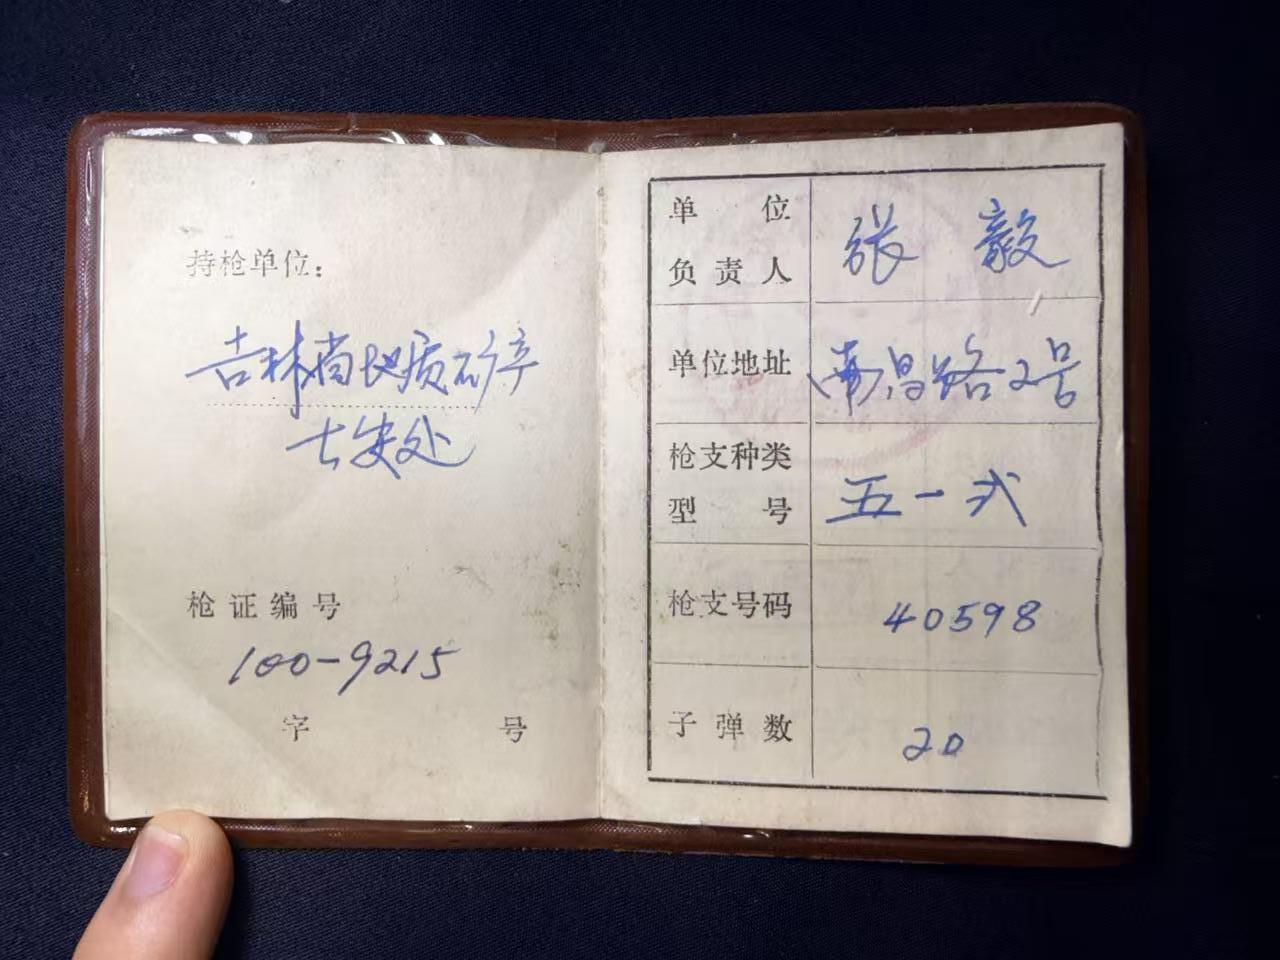 持枪单位：
吉林省地质矿产
七发处
枪证编号
100-9215
字 号
单位
负责人
张毅
单位地址
南昌路2号
枪支种类
型号
五一式
枪支号码
40598
子弹数
20